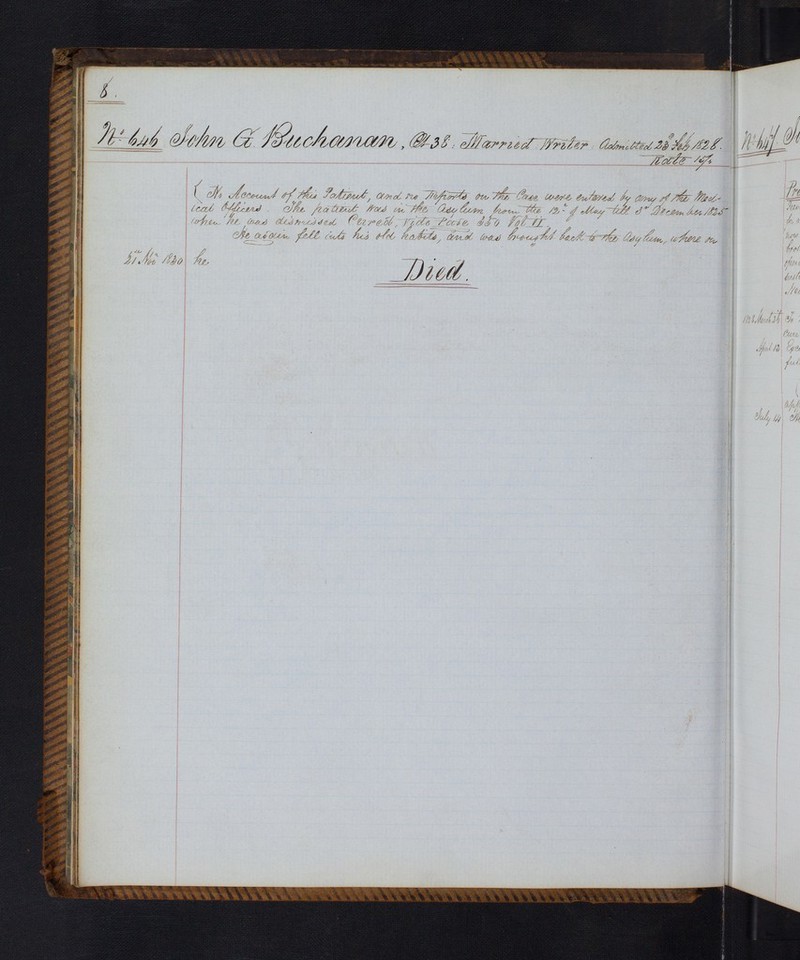 8.
No. 646 John A. Buchanan, Æt 38, Married Writer. Admitted 23d Feby 1828.
Rate 15/
{ No Account of this Patient, and no Reports on the Case were entered by any of the Med-
ical Officers. The patient was in the Asylum from the 12th of May till 3d December 1825
when he was dismissed Cured, Vide Page 350 Vol. II
He again fell into his old habits, and was brought back to the Asylum, where on
21st Nov 1830 he
Died.
No. 647
1828 March 31
April 12
July 14